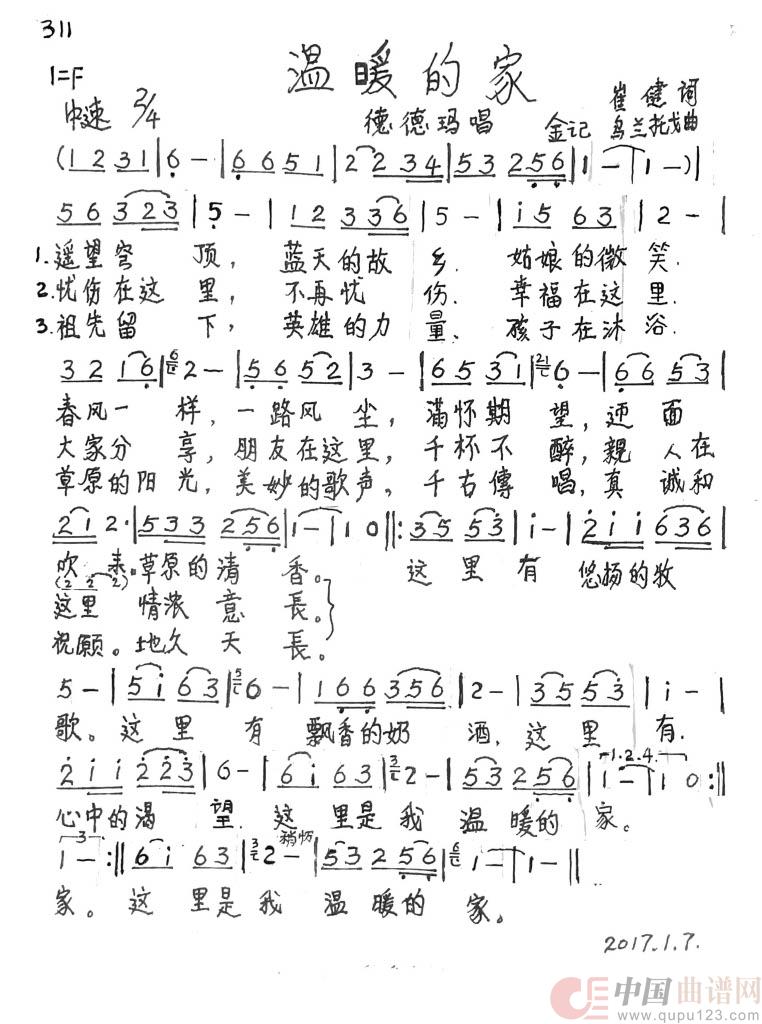 311
温暖的家
1=F
中速 2/4
德德玛唱
崔健词
金记 乌兰托戈曲
(1 2 3 1|6 -|6 6 5 1|2 2 3 4|5 3 2 5 6|1 -|1 -)|
5 6 3 2 3|5 -|1 2 3 3 6|5 -|i 5 6 3|2 -|
1.遥望穹 顶，蓝天的故 乡. 姑娘的微 笑.
2.忧伤在这 里，不再忧 伤. 幸福在这 里.
3.祖先留 下，英雄的力 量、孩子在沐 浴.
3 2 1 6|2 -|5 6 5 2|3 -|6 5 3 1|6 -|6 6 5 3|
春风一 样，一路风 尘，满怀期 望，迎 面
大家分 享，朋友在这里，千杯不 醉，親 人在
草原的阳 光，美妙的歌声，千古傳 唱，真 诚和
2 1 2·|5 3 3 2 5 6|1 -|1 0‖:3 5 5 3|i -|2 i i 6 3 6|
吹 来。草原的清 香。 这 里 有 悠扬的牧
(2 2 2)
这里 情浓 意 長。
祝願。地久 天 長。
5 -|5 i 6 3|6 -|1 6 6 3 5 6|2 -|3 5 5 3|i -|
歌。这 里 有 飘香的奶 酒，这 里 有.
2 i i 2 2 3|6 -|6 i 6 3|2 -|5 3 2 5 6|1 -|1 0:‖
1.2.4.
心中的渴 望. 这 里是我 温 暖的 家。
3
1 -:‖6 i 6 3|2 -|5 3 2 5 6|1 -|1 -‖
稍慢
家。这 里是我 温 暖的 家。
2017.1.7.
中国曲谱网
www.qupu123.com